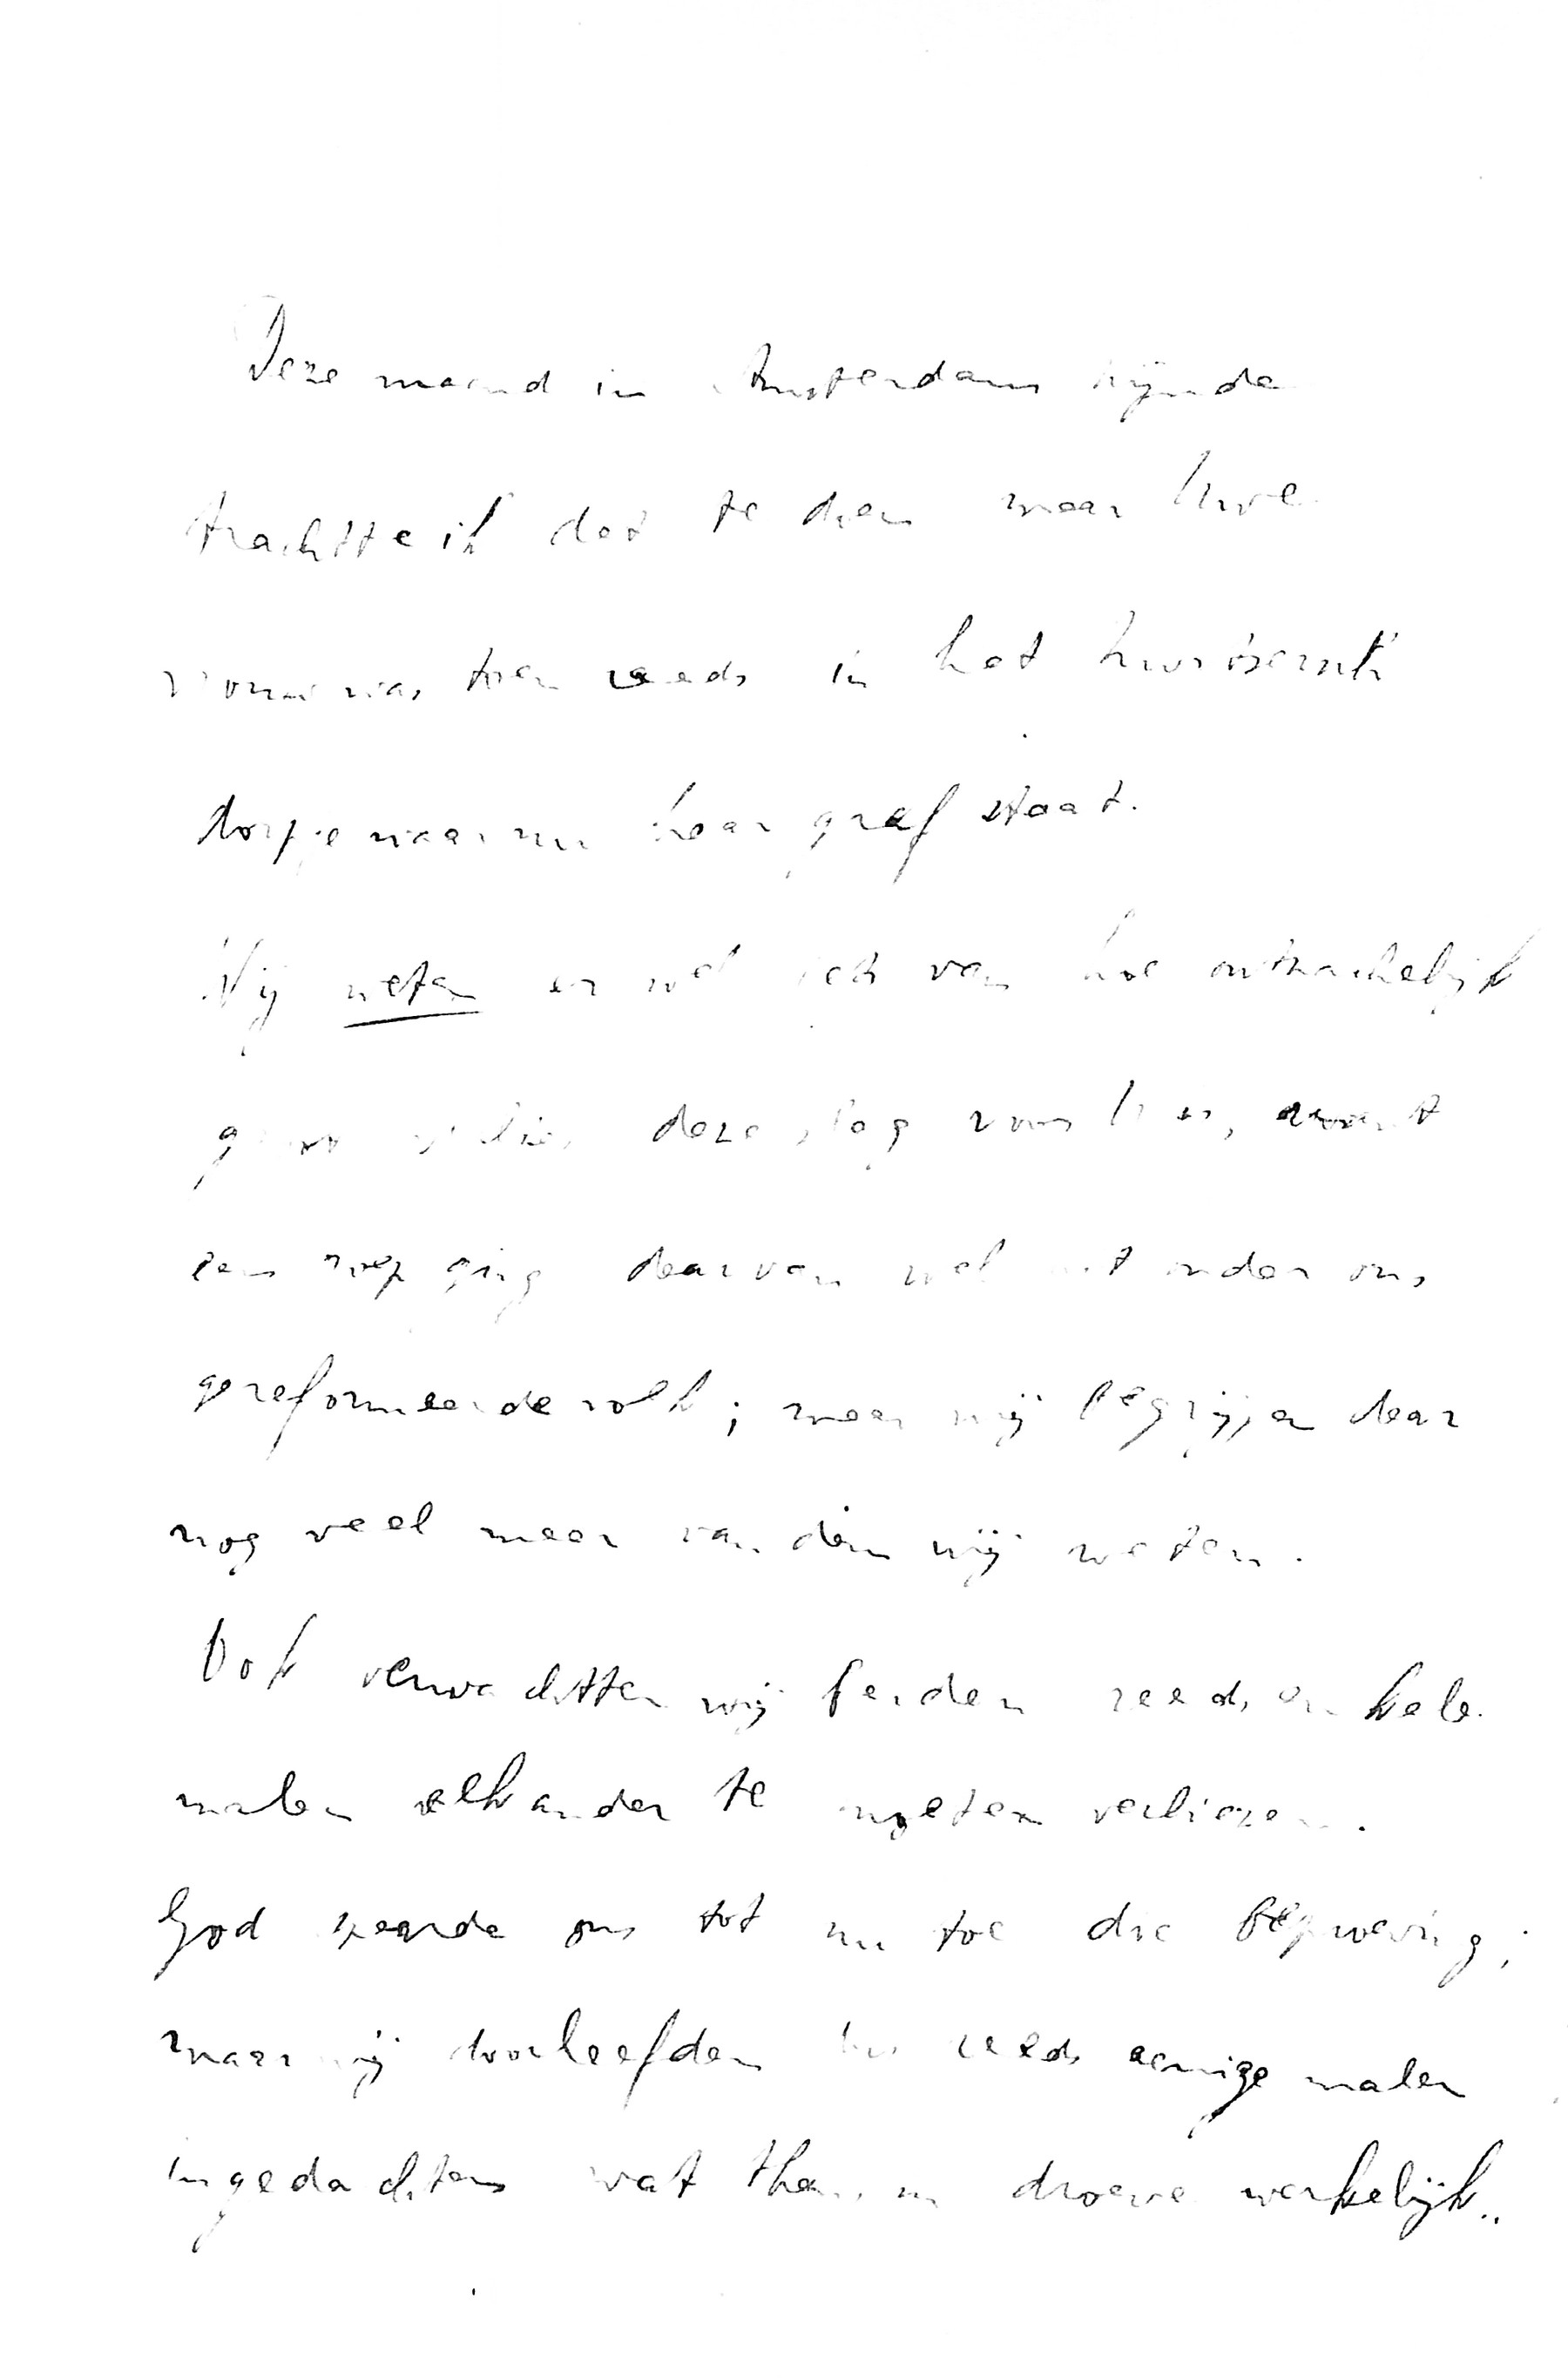 Deze maand in Amsterdam zijnde
trachtte ik dat te doen maar Uwe
vrouw was toen reeds in het
dorpje waar nu haar graf staat.
Wij weten er wel iets van hoe
deze slag voor U is, want
een roep ging daarvan wel uit onder ons
gereformeerde volk; maar wij begrijpen daar
nog veel meer van dan wij weten.
Ook verwachtten wij beiden reeds enkele
malen elkander te moeten verliezen.
God spaarde ons tot nu toe die beproeving;
maar wij doorleefden dus reeds eenige malen
in gedachten wat thans in droeve werkelijk..